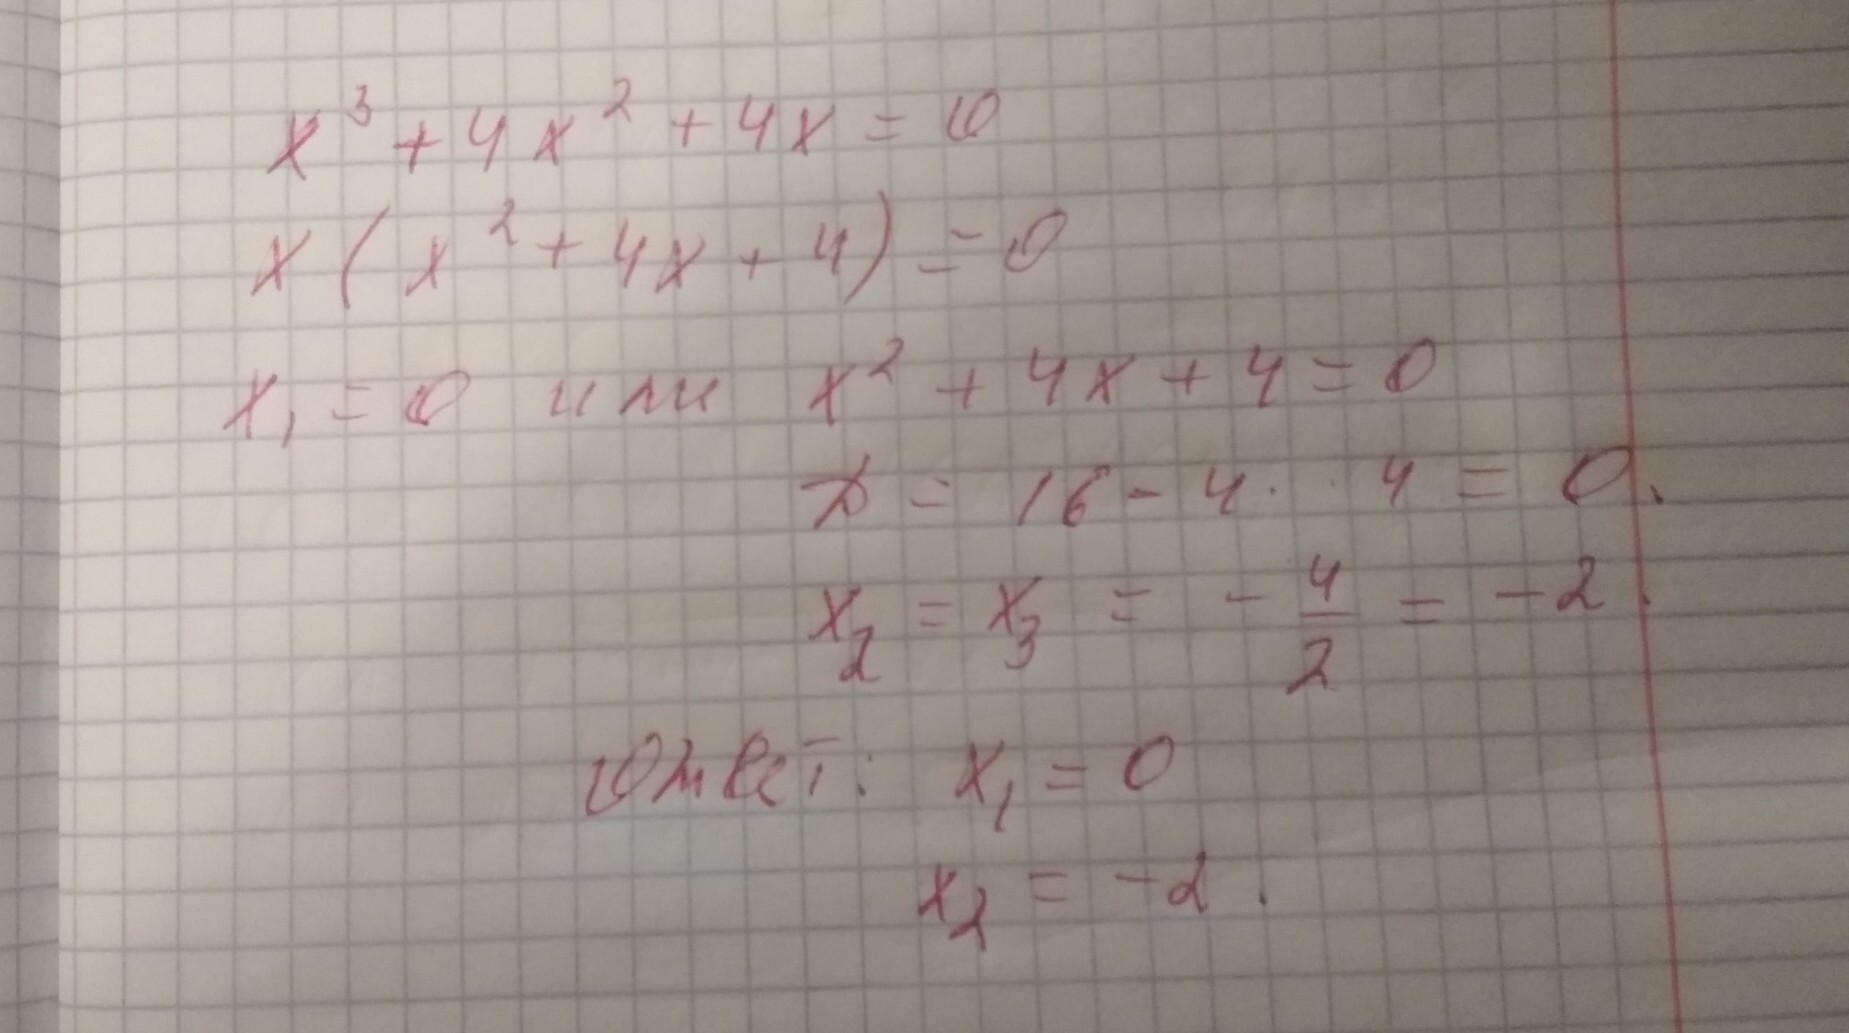 x³ + 4x² + 4x = 0
x(x² + 4x + 4) = 0
x₁ = 0 или x² + 4x + 4 = 0
D = 16 - 4 · · 4 = 0.
x₂ = x₃ = - 4/2 = -2.
Ответ: x₁ = 0
x₂ = -2.